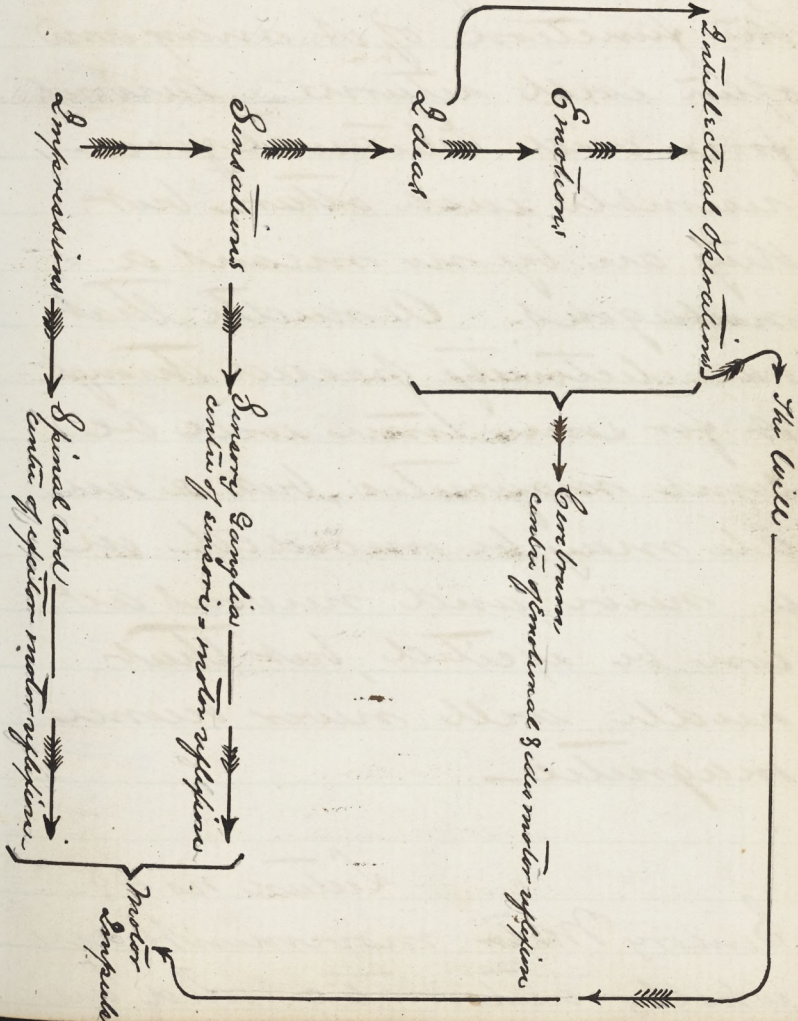 Intellectual Operations
The Will
Emotions
Ideas
Cerebrum
centre of Emotional & ideo motor reflexion
Sensations
Sensory Ganglia
centre of sensori-motor reflexion
Impressions
Spinal cord
centre of excitor motor reflexion
Motor
Impulse